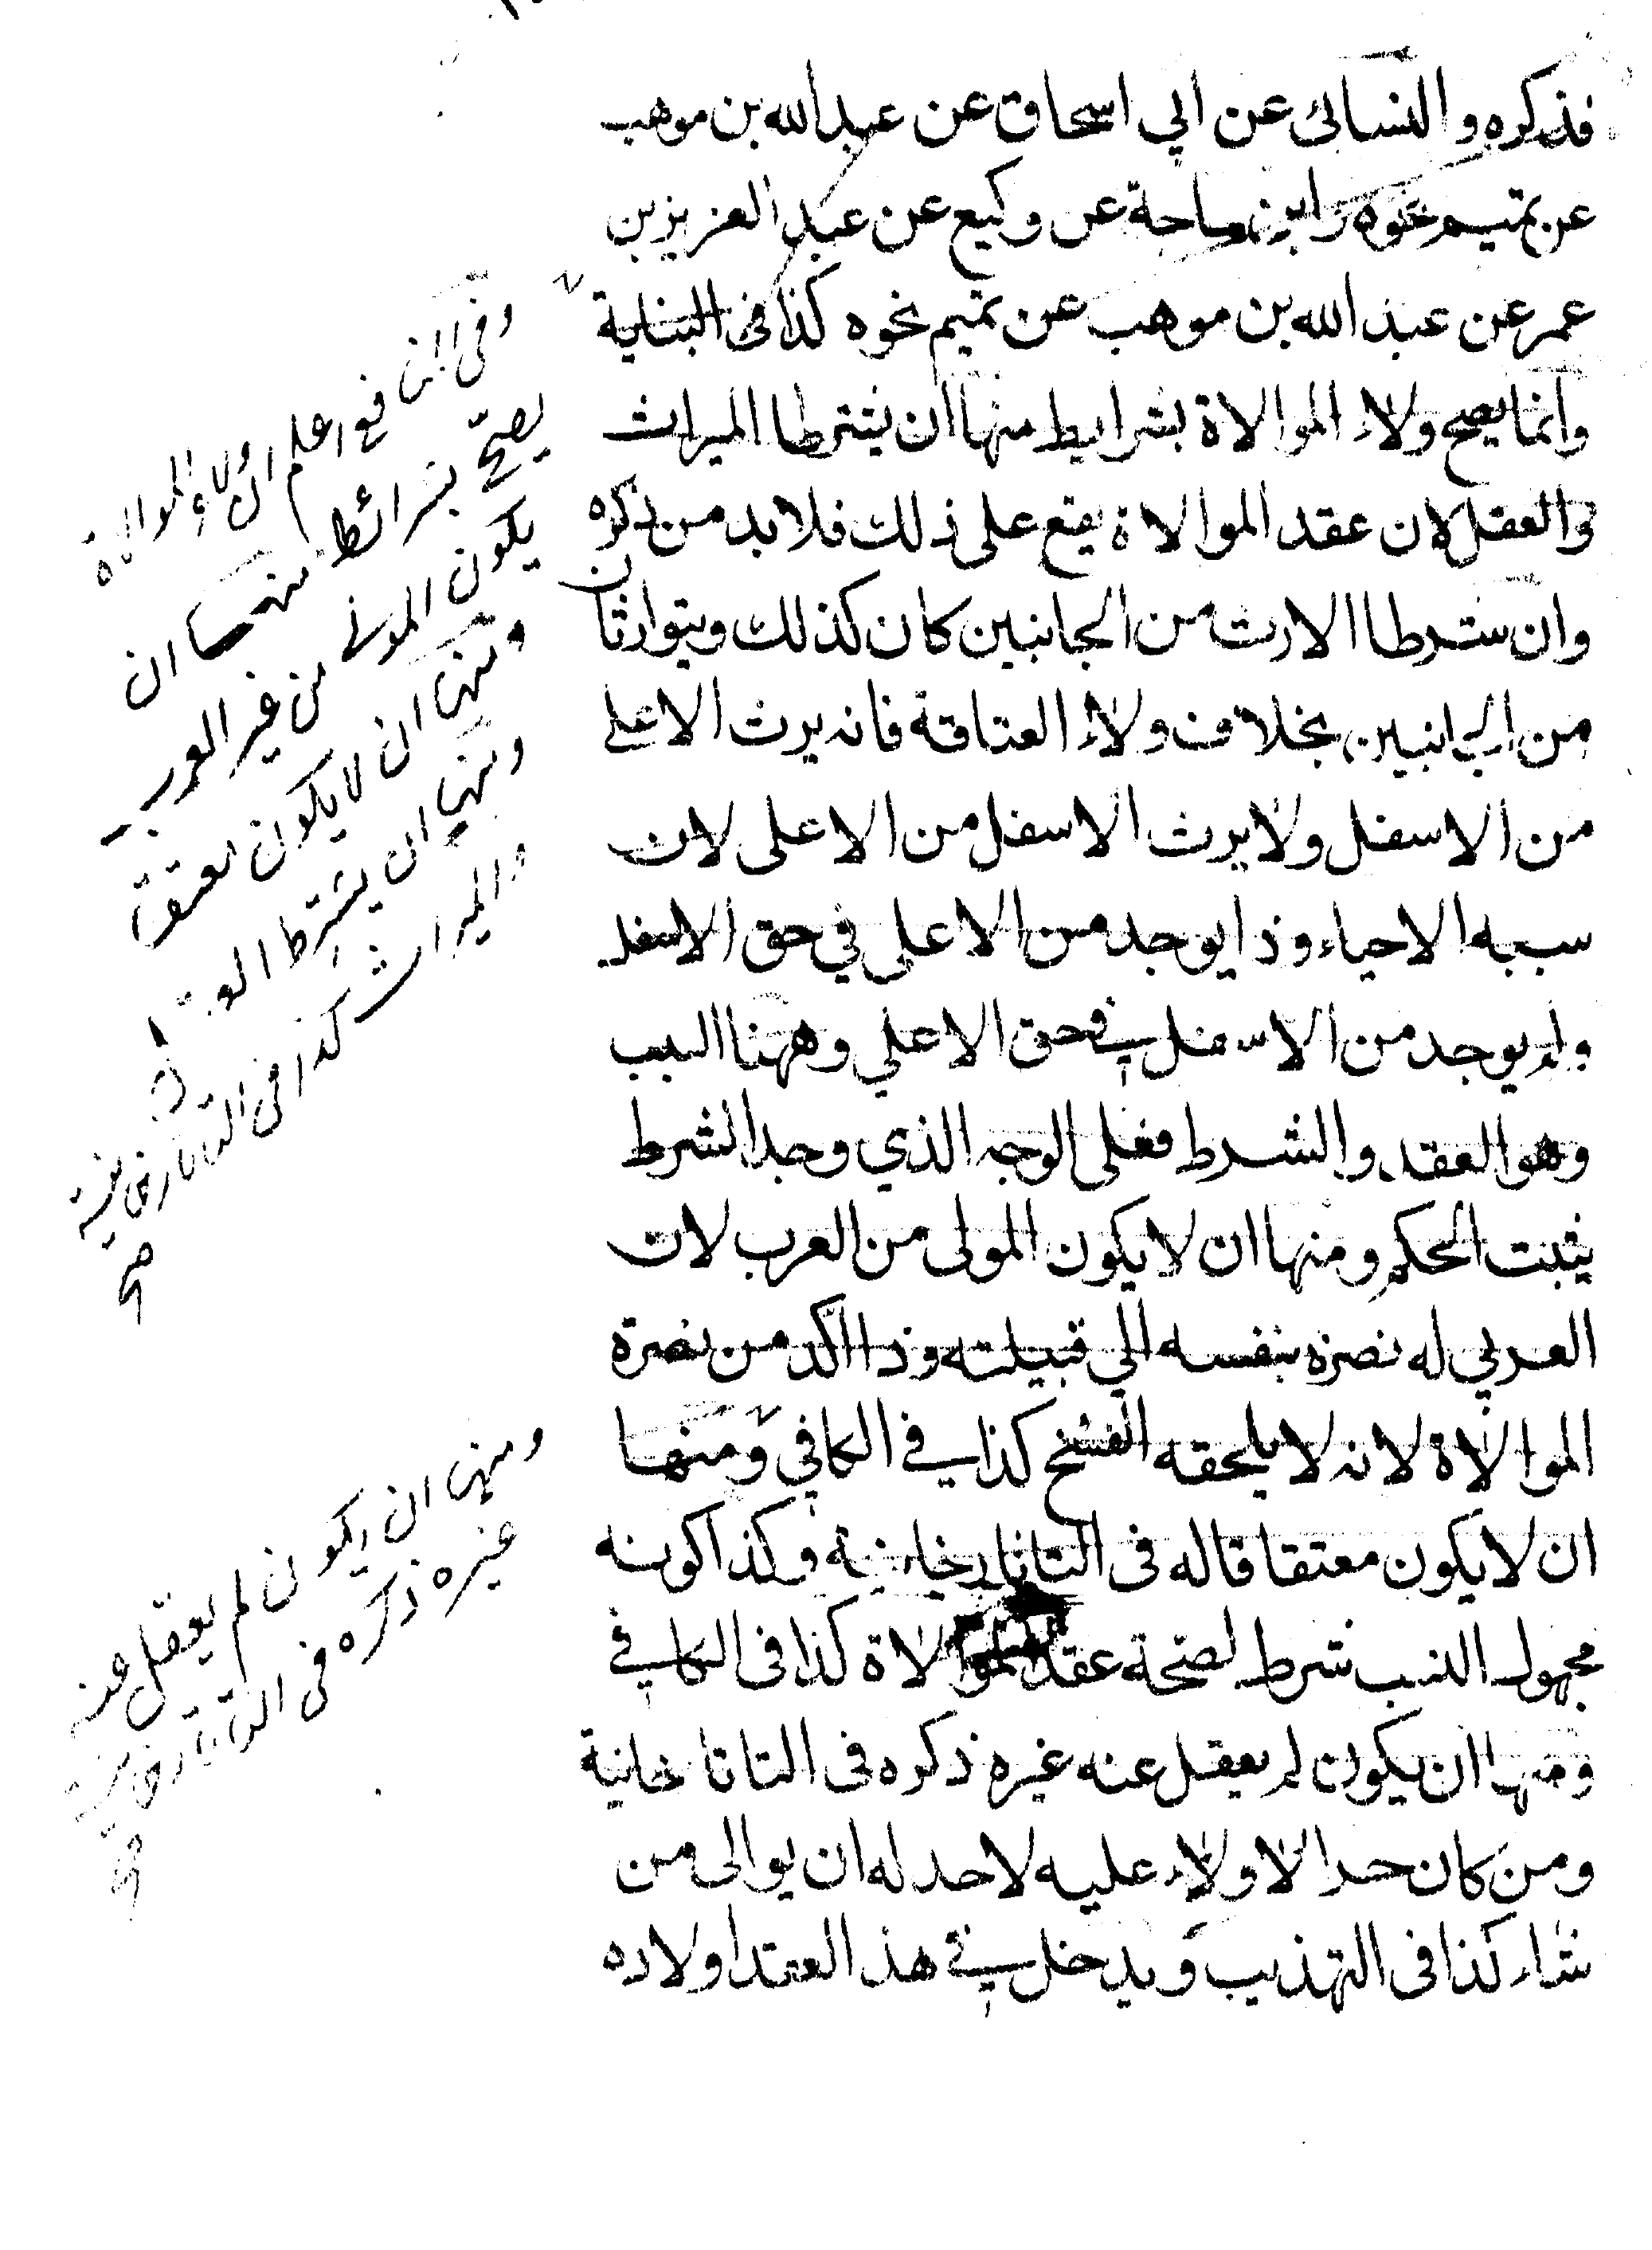 فذكره والنسائى عن ابي اسحاق عن عبدالله بن موهب
عن تميم نحوه وابن ماجة عن وكيع عن عبد العزيز بن
عمر عن عبد الله بن موهب عن تميم نحوه كذا فى البناية
وانما يصح ولاء الموالاة بشرايط منها ان يشترطا الميراث
والعقل لان عقد الموالاة يقع على ذلك فلا بد من ذكره
وان شرطا الارث من الجانبين كان كذلك ويتوارثان
من الجانبين بخلاف ولاء العتاقة فانه يرث الاعلى
من الاسفل ولا يرث الاسفل من الاعلى لان
سببه الاحياء وذا يوجد من الاعلى في حق الاسفل
ولم يوجد من الاسفل في حق الاعلي وههنا السبب
وهو العقد والشرط فعلى الوجه الذي وجد الشرط
يثبت الحكم ومنها ان لا يكون المولى من العرب لان
العربي له نصرة بنفسه الي قبيلته وذا اكد من نصرة
الموالاة لانه لا يلحقه الفسخ كذا في الكافي ومنها
ان لا يكون معتقا قاله فى التاتارخانية وكذا كونه
مجهول النسب شرط لصحة عقد الموالاة كذا فى الكافي
ومنها ان يكون لم يعقل عنه غيره ذكره فى التاتا خانية
ومن كان حرا لا ولاء عليه لاحد له ان يوالى من
شاء كذا فى التهذيب ويدخل في هذا العقد اولاده
وفى النافع اعلم ان ولاء الموالاة
يصح بشرائط منها ان
يكون المولى من غير العرب
ومنها ان لا يكون معتقا
ومنها ان يشترط
والميراث كذا فى التاتارخانية
ومنها ان يكون لم يعقل عنه
غيره ذكره فى التاتارخانية